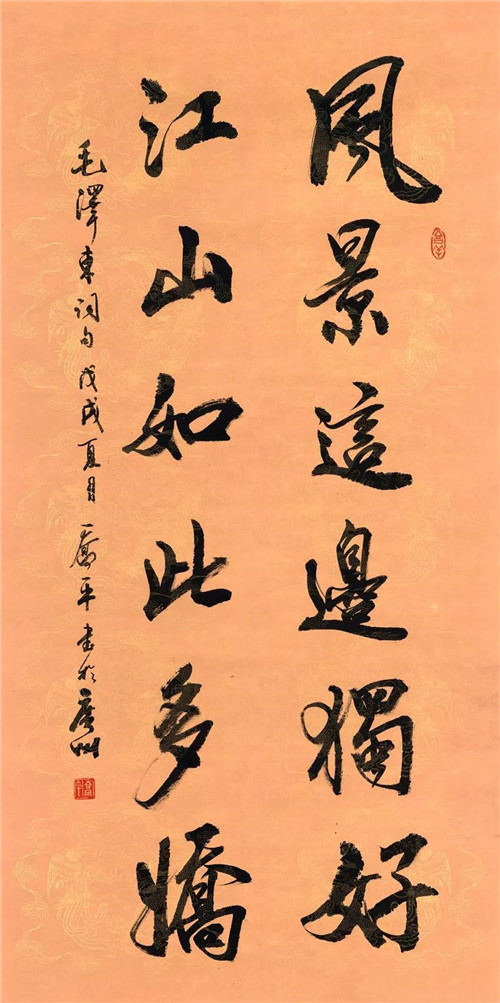 風景這邊獨好
江山如此多嬌
毛澤東詞句戊戌夏月平書於廣州